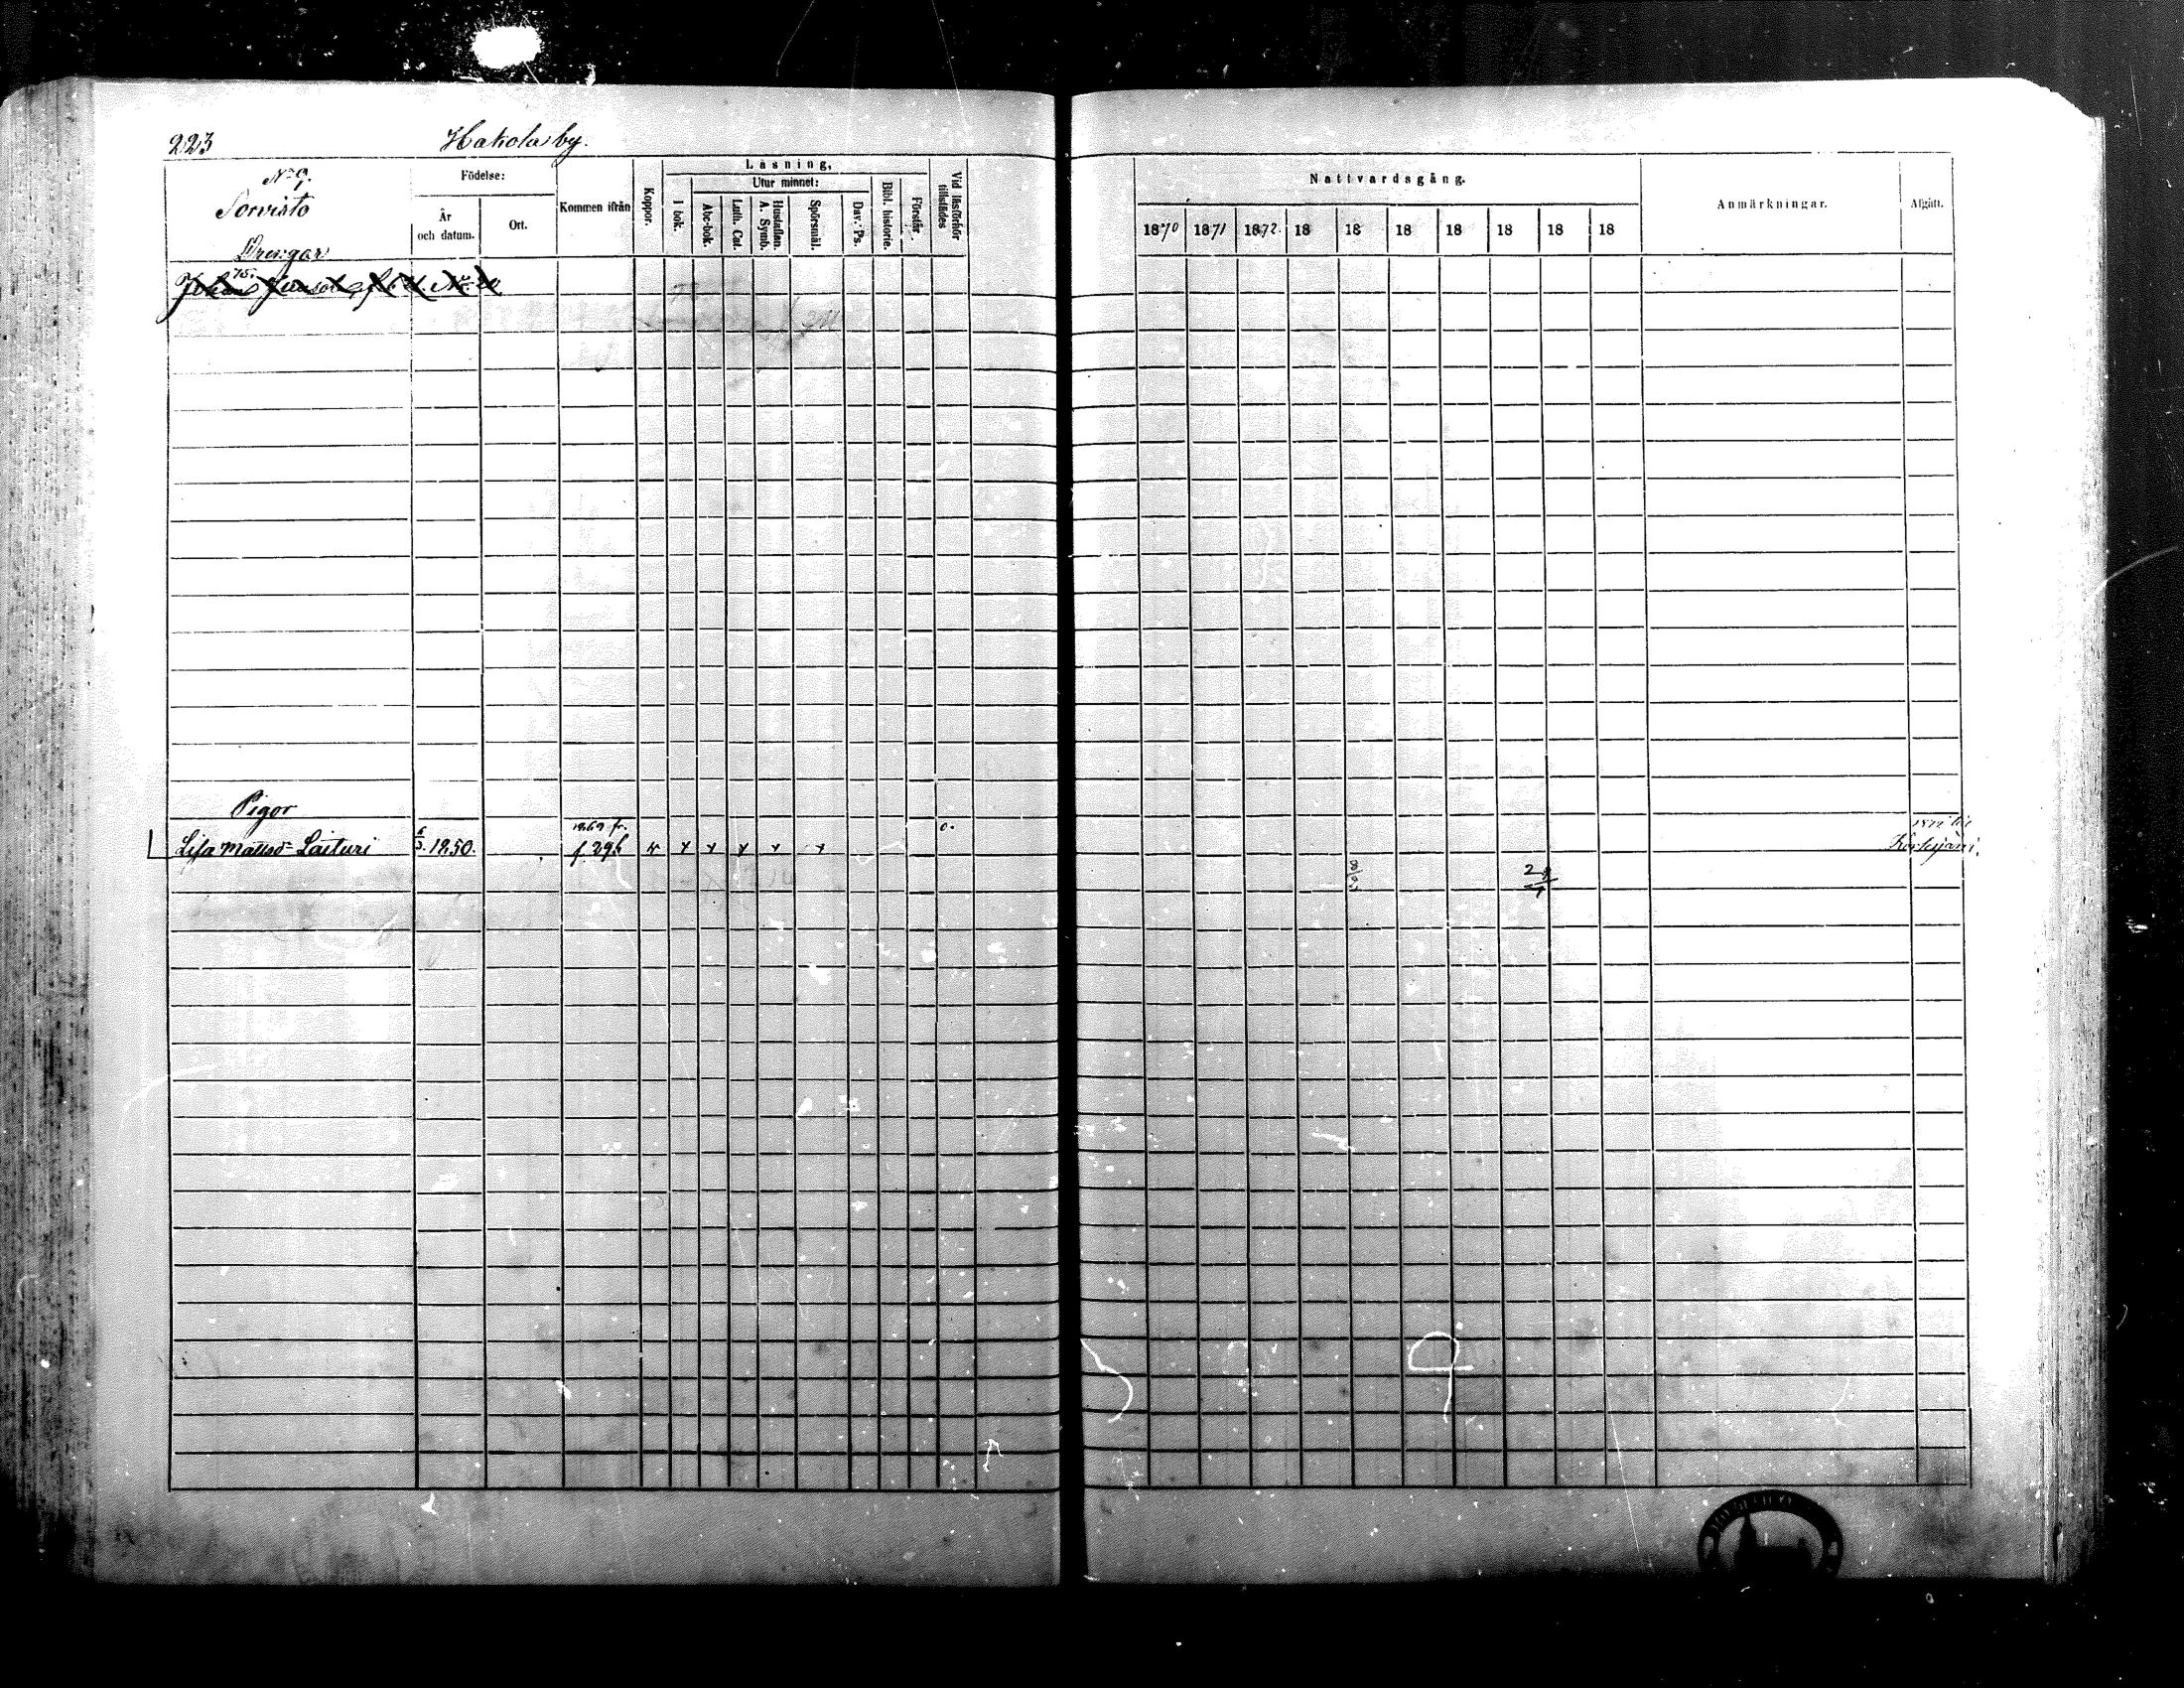 223 Hakola by.
No 9.
Sorvisto
Drengar
Födelse:
År och datum.
Ort.
Kommen ifrån
Koppor.
Läsning,
I bok.
Utur minnet:
Abc-bok.
Luth. Cat.
Hustaflan. A. Symb.
Spörsmål.
Dav. Ps.
Bibl. historie.
Förstår
Vid läsförhör tillstädes
Nattvardsgång.
1870 1871 1872 18 18 18 18 18 18 18
Anmärkningar.
Afgått.
Pigor
1869 fr. 0.
Lisa Mattsd= Laituri 6/5. 1850. f. 296 x x x x x